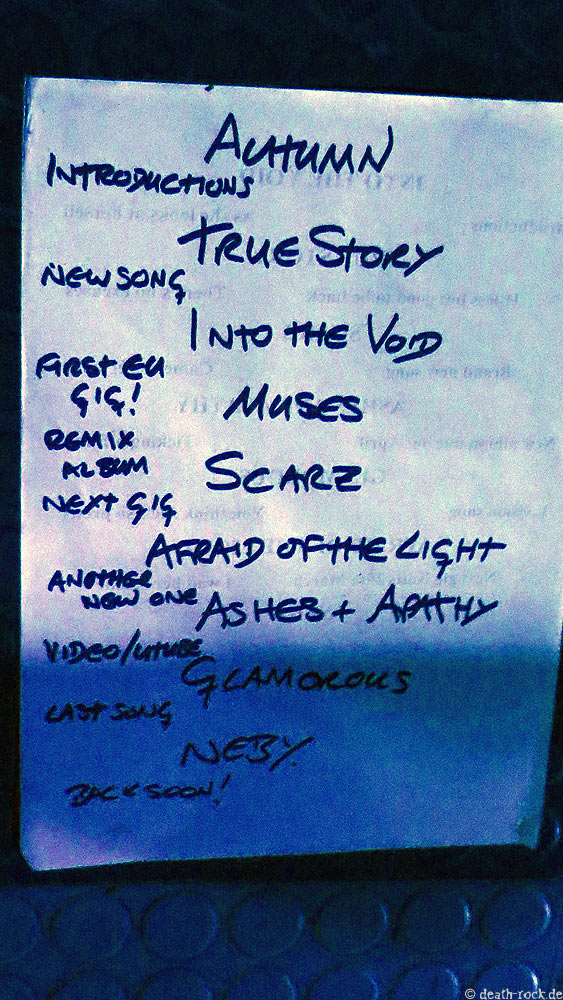 AUTUMN
INTRODUCTIONS
TRUE STORY
NEW SONG
INTO THE VOID
FIRST EU
GIG!
MUSES
REMIX
ALBUM
SCARZ
NEXT GIG
AFRAID OF THE LIGHT
ANOTHER
NEW ONE
ASHES + APATHY
VIDEO/UTUBE
GLAMOROUS
LAST SONG
NEBY.
BACK SOON!
© death-rock.de